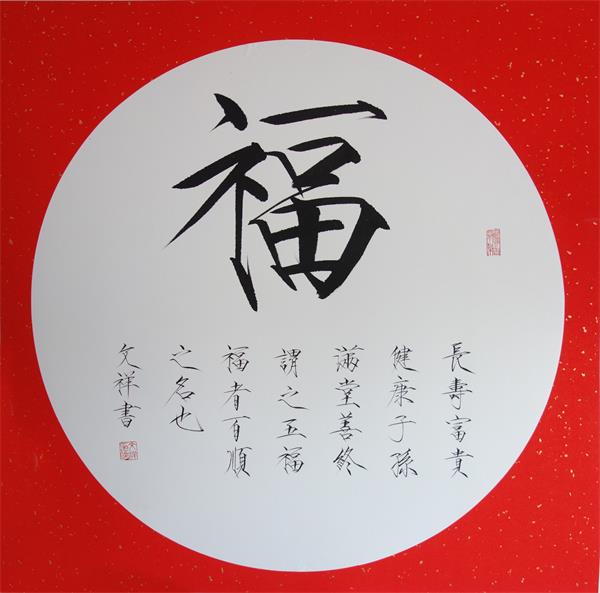 福
長壽富貴
健康子孫
滿堂善終
謂之五福
福者百順
之名也
文祥書